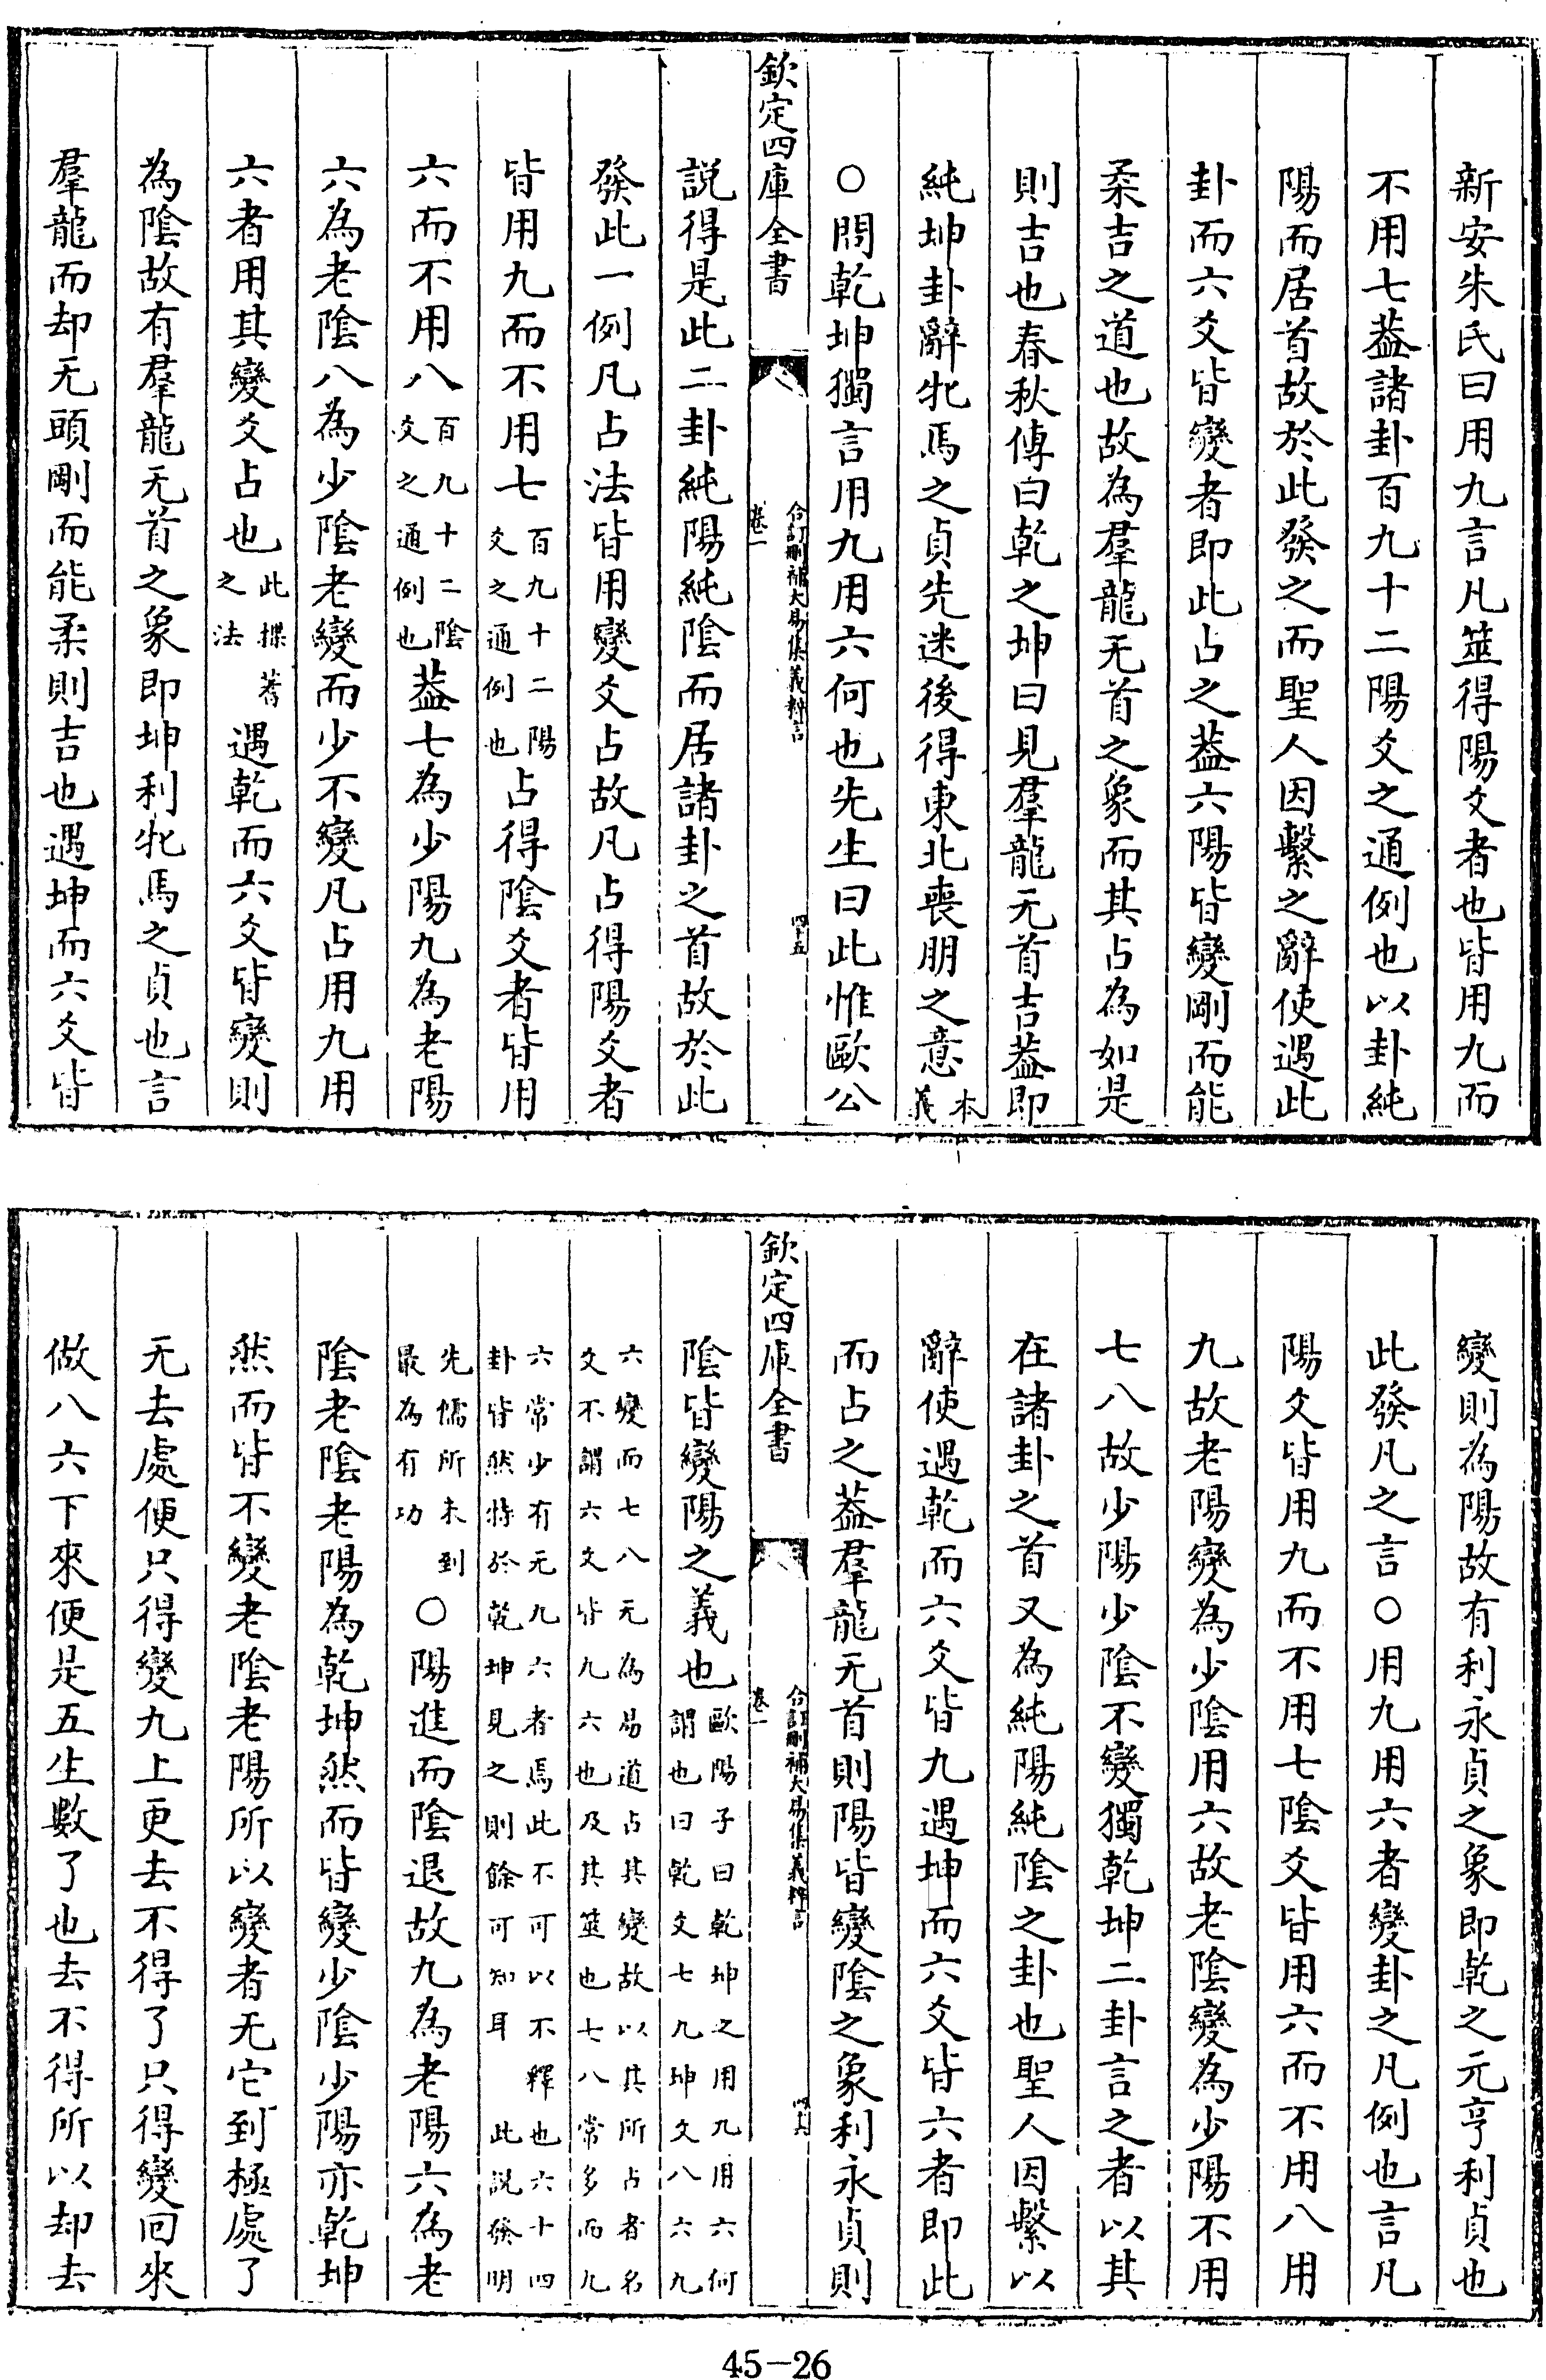 新安朱氏曰用九言凡筮得陽爻者也皆用九而
不用七葢諸卦百九十二陽爻之通例也以卦純
陽而居首故於此發之而聖人因繫之辭使遇此
卦而六爻皆變者即此占之葢六陽皆變剛而能
柔吉之道也故為羣龍无首之象而其占為如是
則吉也春秋傳曰乾之坤曰見羣龍无首吉葢即
純坤卦辭牝馬之貞先迷後得東北喪朋之意本義
○問乾坤獨言用九用六何也先生曰此惟歐公
欽定四庫全書
合訂刪補大易集義粹言
卷一
四十五
説得是此二卦純陽純陰而居諸卦之首故於此
發此一例凡占法皆用變爻占故凡占得陽爻者
皆用九而不用七百九十二陽爻之通例也占得陰爻者皆用
六而不用八百九十二陰爻之通例也葢七為少陽九為老陽
六為老陰八為少陰老變而少不變凡占用九用
六者用其變爻占也此揲蓍之法遇乾而六爻皆變則
為陰故有羣龍无首之象即坤利牝馬之貞也言
羣龍而却无頭剛而能柔則吉也遇坤而六爻皆
變則為陽故有利永貞之象即乾之元亨利貞也
此發凡之言○用九用六者變卦之凡例也言凡
陽爻皆用九而不用七陰爻皆用六而不用八用
九故老陽變為少陰用六故老陰變為少陽不用
七八故少陽少陰不變獨乾坤二卦言之者以其
在諸卦之首又為純陽純陰之卦也聖人因繫以
辭使遇乾而六爻皆九遇坤而六爻皆六者即此
而占之葢羣龍无首則陽皆變陰之象利永貞則
欽定四庫全書
合訂刪補大易集義粹言
卷一
四十六
陰皆變陽之義也歐陽子曰乾坤之用九用六何謂也曰乾爻七九坤爻八六九
六變而七八无為易道占其變故以其所占者名爻不謂六爻皆九六也及其筮也七八常多而九
六常少有无九六者焉此不可以不釋也六十四卦皆然特於乾坤見之則餘可知耳此説發明
先儒所未到最為有功○陽進而陰退故九為老陽六為老
陰老陰老陽為乾坤然而皆變少陰少陽亦乾坤
然而皆不變老陰老陽所以變者无它到極處了
无去處便只得變九上更去不得了只得變回來
做八六下來便是五生數了也去不得所以却去
45-26